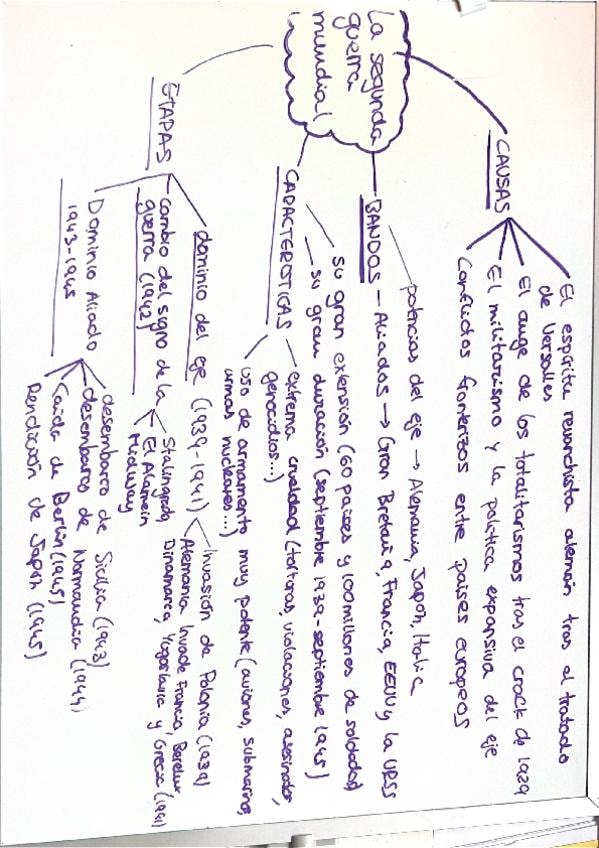 La segunda
guerra
mundial
CAUSAS
El espíritu revanchista alemán tras el tratado
de Versalles
El auge de los totalitarismos tras el crack de 1929
El militarismo y la política expansiva del eje
Conflictos fronterizos entre países europeos
BANDOS
potencias del eje → Alemania, Japón, Italia
Aliados → Gran Bretaña, Francia, EEUU y la URSS
CARACTERÍSTICAS
su gran extensión (60 países y 100 millones de soldados)
su gran duración (septiembre 1939-septiembre 1945)
extrema crueldad (torturas, violaciones, asesinatos,
genocidios...)
uso de armamento muy potente (aviones, submarinos,
armas nucleares...)
ETAPAS
dominio del eje (1939-1941)
Invasión de Polonia (1939)
Alemania invade Francia, Benelux
Dinamarca, Yugoslavia y Grecia (1941)
cambio del signo de la
guerra (1942)
Stalingrado
El Alamein
Midway
Dominio Aliado
1943-1945
desembarco de Sicilia (1943)
desembarco de Normandía (1944)
Caída de Berlín (1945)
Rendición de Japón (1945)